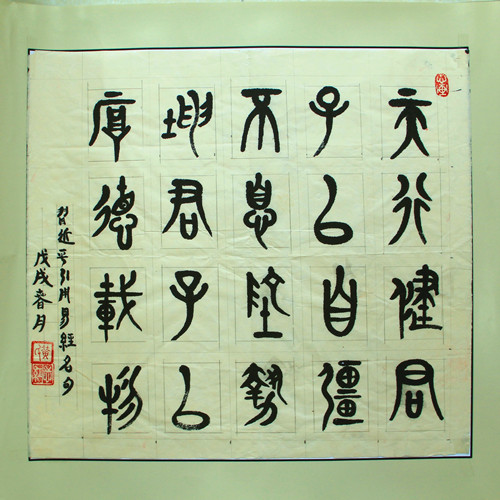 天行健君
子以自彊
不息地勢
坤君子以
厚德載物
習近平引用易經名句
戊戌春月